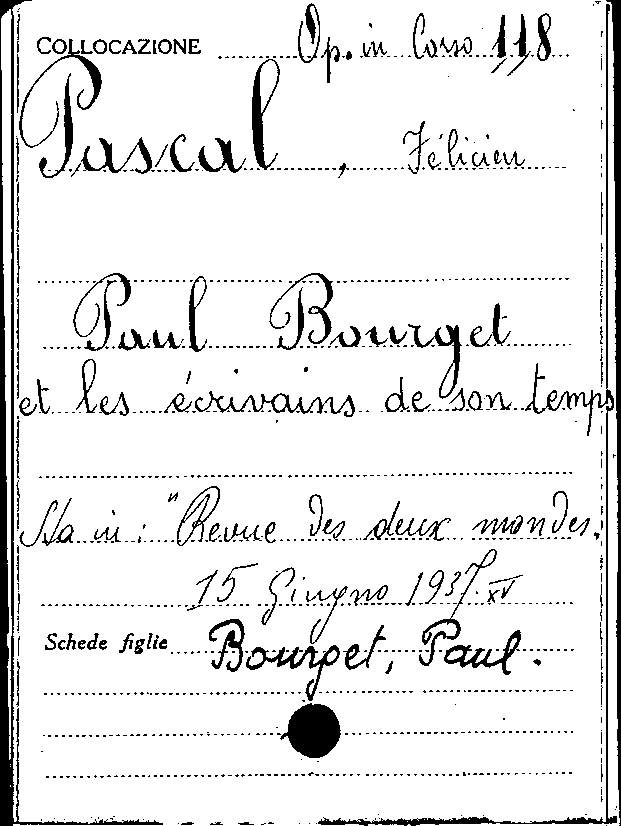 COLLOCAZIONE Op. in Corso 118
Pascal, Félicien
Paul Bourget
et les écrivains de son temps
Sta in: "Revue des deux mondes.
15 Giugno 1937. XV
Schede figlie Bourget, Paul.